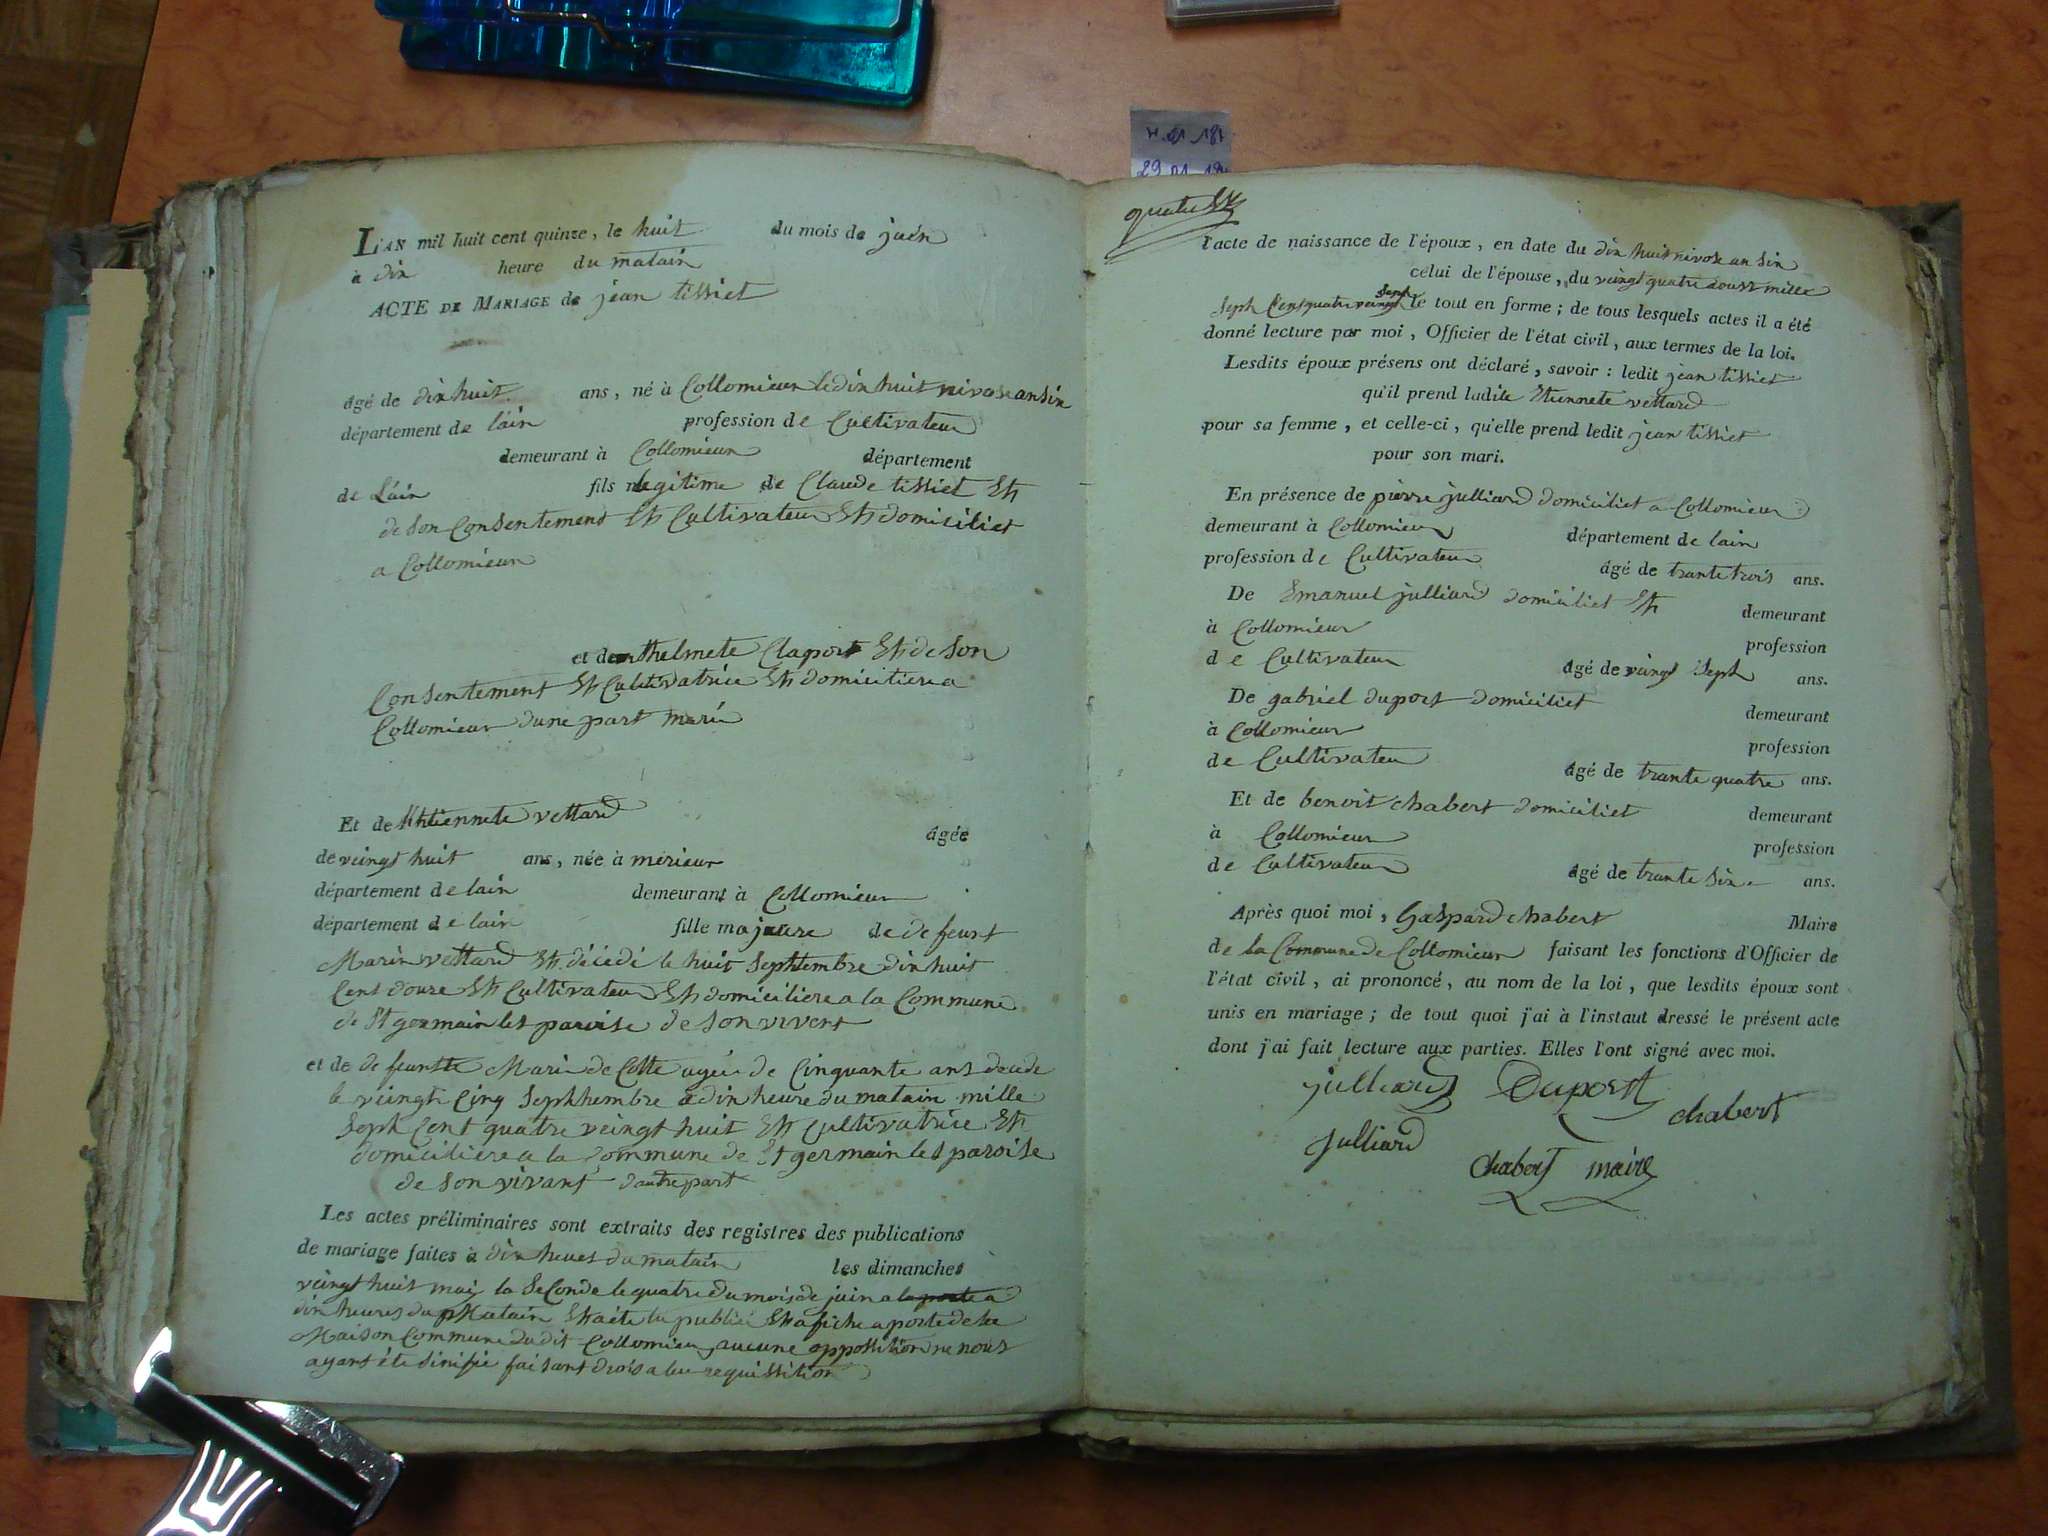 L'AN mil huit cent quinze, le huit du mois de juén
à dix heure du matain
ACTE DE MARIAGE de jean tissiet
âgé de dix huit ans, né à Collomieux le dix huit nivose an six
département de láin profession de Cultivateur
demeurant à Collomieux département
de Láin fils légitime de Claude tissiet Eh
de son Consentement Eh Cultivateur Eh domiciliet
a Collomieux
et de anthelmete Claport Eh de son
Consentement Eh Cultivatrice Eh domiciliere a
Collomieux dune part marié
Et de Ehtiennete vettard
âgée
de veingt huit ans, née à mérieux
département de lain demeurant à Collomieux
département de lain fille majeure de defeunt
Marin vettard Eh décédé le huit Septembre dix huit
Cent douze Eh Cultivateur Eh domiciliere a la Commune
de St germain les paroise de son vivent
et de defeunte Marie de Cotte agée de Cinquante ans décédé
le veingt Cinq Septhembre a dix heure du matain mille
Seph Cent quatre veingt huit Eh Cultivatrice Eh
domiciliere a la Commune de St germain les paroise
de son vivant dautre part
Les actes préliminaires sont extraits des registres des publications
de mariage faites à dix heures du matain les dimanches
veingt huit maij la SeConde le quatre du mois de juin a la porte a
dix heures du Matain Eh a éte lu publié Eh afiche a porte de la
Maison Commune dudit Collomieux aucune oppossition ne nous
ayant éte sinifié faisant drois a leu requissition
21 187
29 01
quatre
l'acte de naissance de l'époux, en date du dix huit nivose an six
celui de l'épouse, du veingt quatre aoust mille
Seph Cent quatre veingt Seph le tout en forme; de tous lesquels actes il a été
donné lecture par moi, Officier de l'état civil, aux termes de la loi.
Lesdits époux présens ont déclaré, savoir: ledit jean tissiet
qu'il prend ladite Etiennete vettard
pour sa femme, et celle-ci, qu'elle prend ledit jean tissiet
pour son mari.
En présence de pierre julliard domiciliet a Collomieux
demeurant à Collomieux département de lain
profession de Cultivateur âgé de trante trois ans.
De Emanuel julliard domiciliet Eh demeurant
à Collomieux profession
de Cultivateur âgé de veingt Seph ans.
De gabriel duport domiciliet demeurant
à Collomieux profession
de Cultivateu âgé de trante quatre ans.
Et de benoit chabert domiciliet demeurant
à Collomieux profession
de Cultivateur âgé de trante six ans.
Après quoi moi, Gaspard chabert Maire
de la Commune de Collomieux faisant les fonctions d'Officier de
l'état civil, ai prononcé, au nom de la loi, que lesdits époux sont
unis en mariage; de tout quoi j'ai à l'instaut dressé le présent acte
dont j'ai fait lecture aux parties. Elles l'ont signé avec moi.
julliard Duport chabert
Julliard
chabert maire